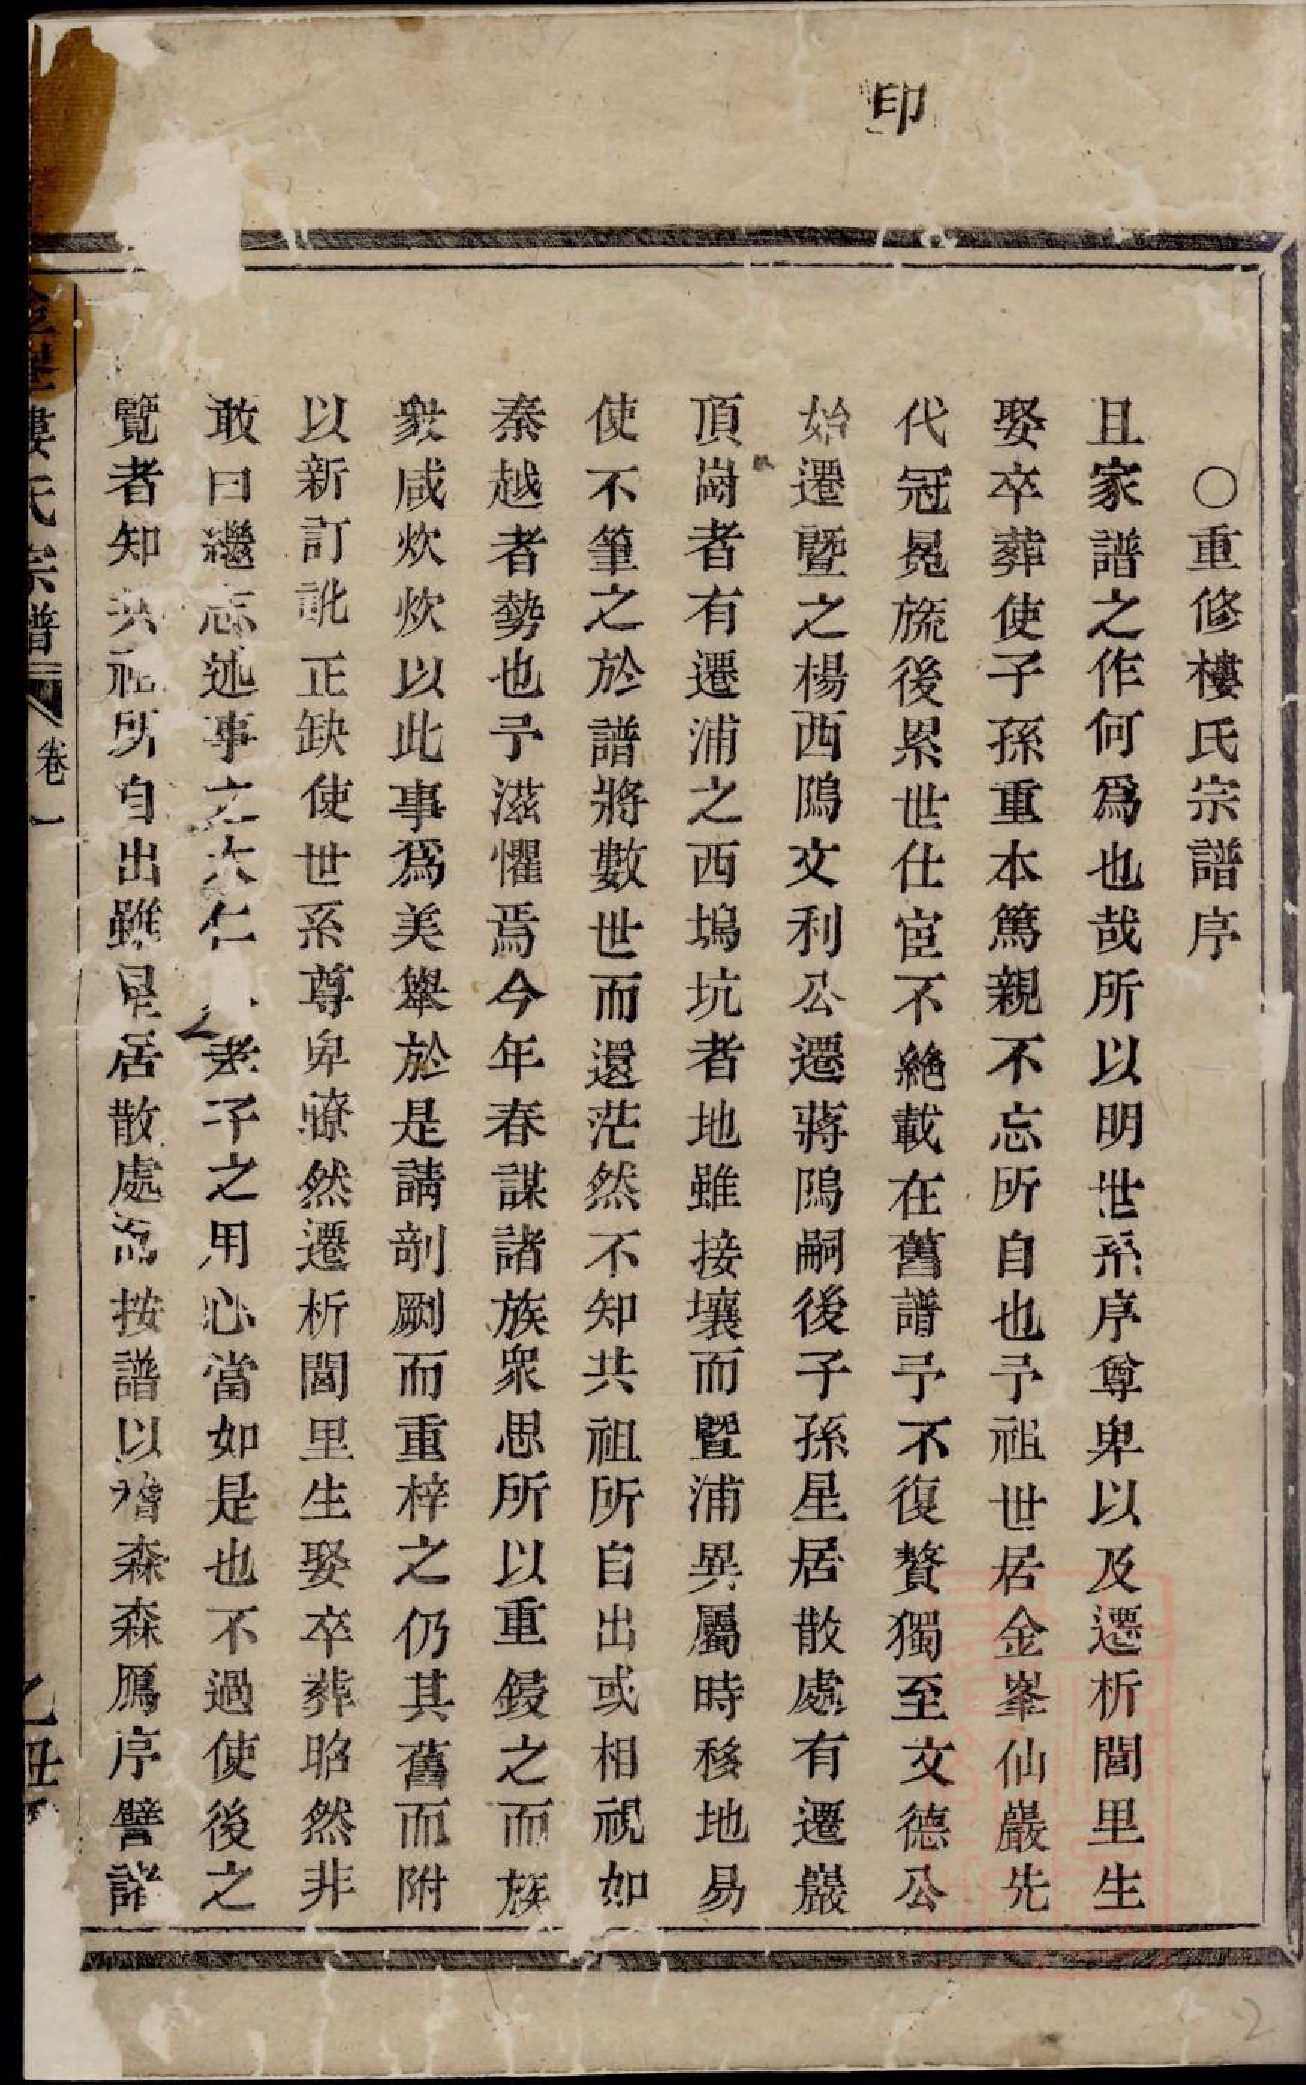 印
○重修樓氏宗譜序
且家譜之作何爲也哉所以明世系序尊卑以及遷析閭里生
娶卒葬使子孫重本篤親不忘所自也予祖世居金峯仙巖先
代冠冕旒後累世仕宦不絶載在舊譜予不復贅獨至文德公
始遷暨之楊西隖文利公遷蔣隖嗣後子孫星居散處有遷巖
頂崗者有遷浦之西塢坑者地雖接壤而暨浦異屬時移地易
使不筆之於譜將數世而還茫然不知共祖所自出或相視如
秦越者勢也予滋懼焉今年春謀諸族衆思所以重鋟之而族
衆咸炊炊以此事爲美舉於是請剞劂而重梓之仍其舊而附
以新訂訛正缺使世系尊卑瞭然遷析閭里生娶卒葬昭然非
敢曰繼志述事之大仁人孝子之用心當如是也不過使後之
覽者知共祖所自出雖星居散處而按譜以稽森森鴈序譬諸
樓氏宗譜 卷一